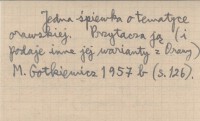 Jedna śpiewka o tematyce
orawskiej. Przytacza ją (i
podaje inne jej warianty z Orawy)
M. Gotkiewicz 1957 b (s. 126).